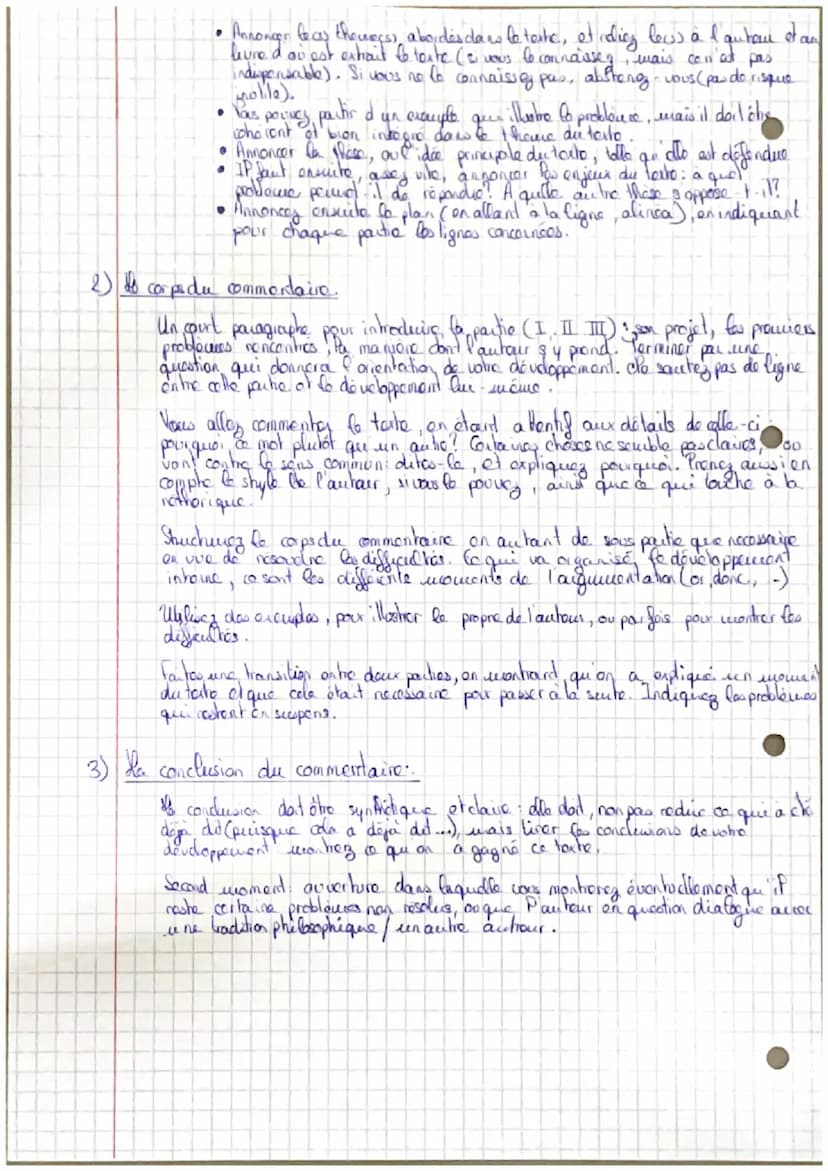 • Annoncer le(s) thème(s), abordés dans le texte, et reliez le(s) à l'auteur et au
livre d'où est extrait le texte (si vous le connaissez, mais ce n'est pas
indispensable). Si vous ne le connaissez pas, abstenez-vous (pas de risque
inutile).
• Vous pouvez partir d'un exemple qui illustre le problème, mais il doit être
cohérent et bien intégré dans le thème du texte.
• Annoncer la thèse, ou l'idée principale du texte, telle qu'elle est défendue
• Il faut ensuite, assez vite, annoncer les enjeux du texte : à quel
problème permet-il de répondre? A quelle autre thèse s'oppose-t-il?
• Annoncez ensuite le plan (en allant à la ligne, alinéa), en indiquant
pour chaque partie les lignes concernées.
2) Le corps du commentaire.
Un court paragraphe pour introduire la partie (I, II, III) : son projet, les premiers
problèmes rencontrés, la manière dont l'auteur s'y prend. Terminer par une
question, qui donnera l'orientation de votre développement. Ne sautez pas de ligne
entre cette partie et le développement lui-même.
Vous allez commenter le texte, en étant attentif aux détails de celle-ci :
pourquoi ce mot plutôt qu'un autre? Certaines choses ne semble pas claires, ou
vont contre le sens commun : dites-le, et expliquez pourquoi. Prenez aussi en
compte le style de l'auteur, si vous le pouvez, ainsi que ce qui touche à la
réthorique.
Structurez le corps du commentaire en autant de sous partie que nécessaire
en vue de résoudre les difficultés. Ce qui va organisé, le développement
interne, ce sont les différents moments de l'argumentation (or, donc, -)
Utilisez des exemples, pour illustrer le propre de l'auteur, ou parfois pour montrer les
difficultés.
Faites une transition entre deux parties, en montrant qu'on a expliqué un moment
du texte et que cela était nécessaire pour passer à la suite. Indiquez les problèmes
qui restent en suspens.
3) La conclusion du commentaire :.
La conclusion doit être synthétique et claire : elle doit, non pas redire ce qui a été
déjà dit (puisque cela a déjà dit...), mais tirer les conclusions de votre
développement montrez ce qu'on a gagné ce texte.
Second moment : ouverture dans laquelle vous montrerez éventuellement qu'il
reste certains problèmes non résolus, ou que l'auteur en question dialogue avec
une tradition philosophique / un autre auteur.